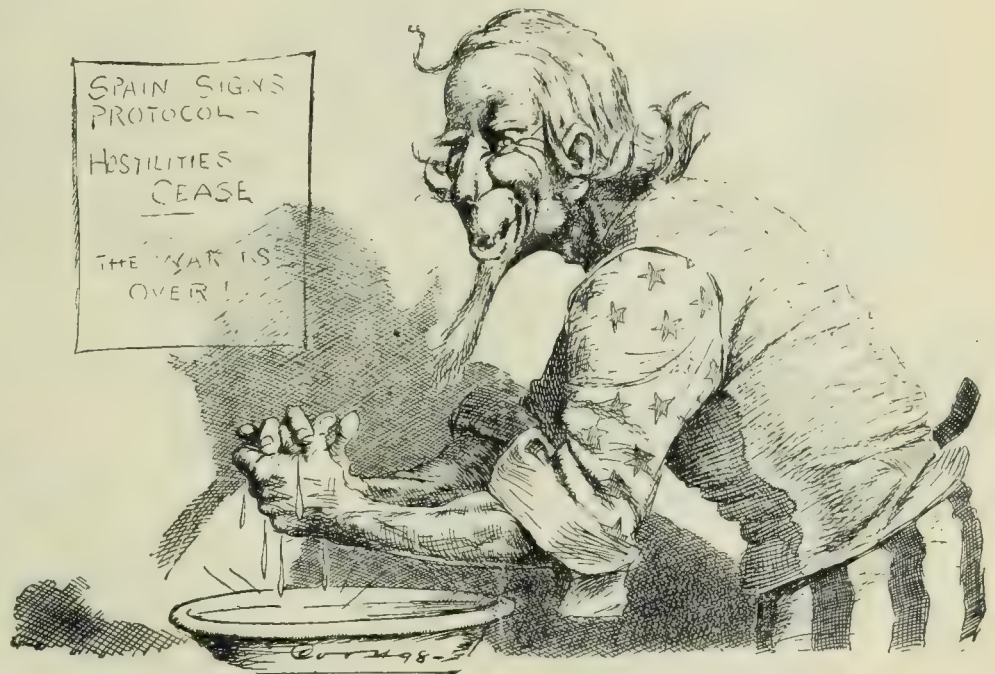 SPAIN SIGNS
PROTOCOL -
HOSTILITIES
CEASE
THE WAR IS
OVER!